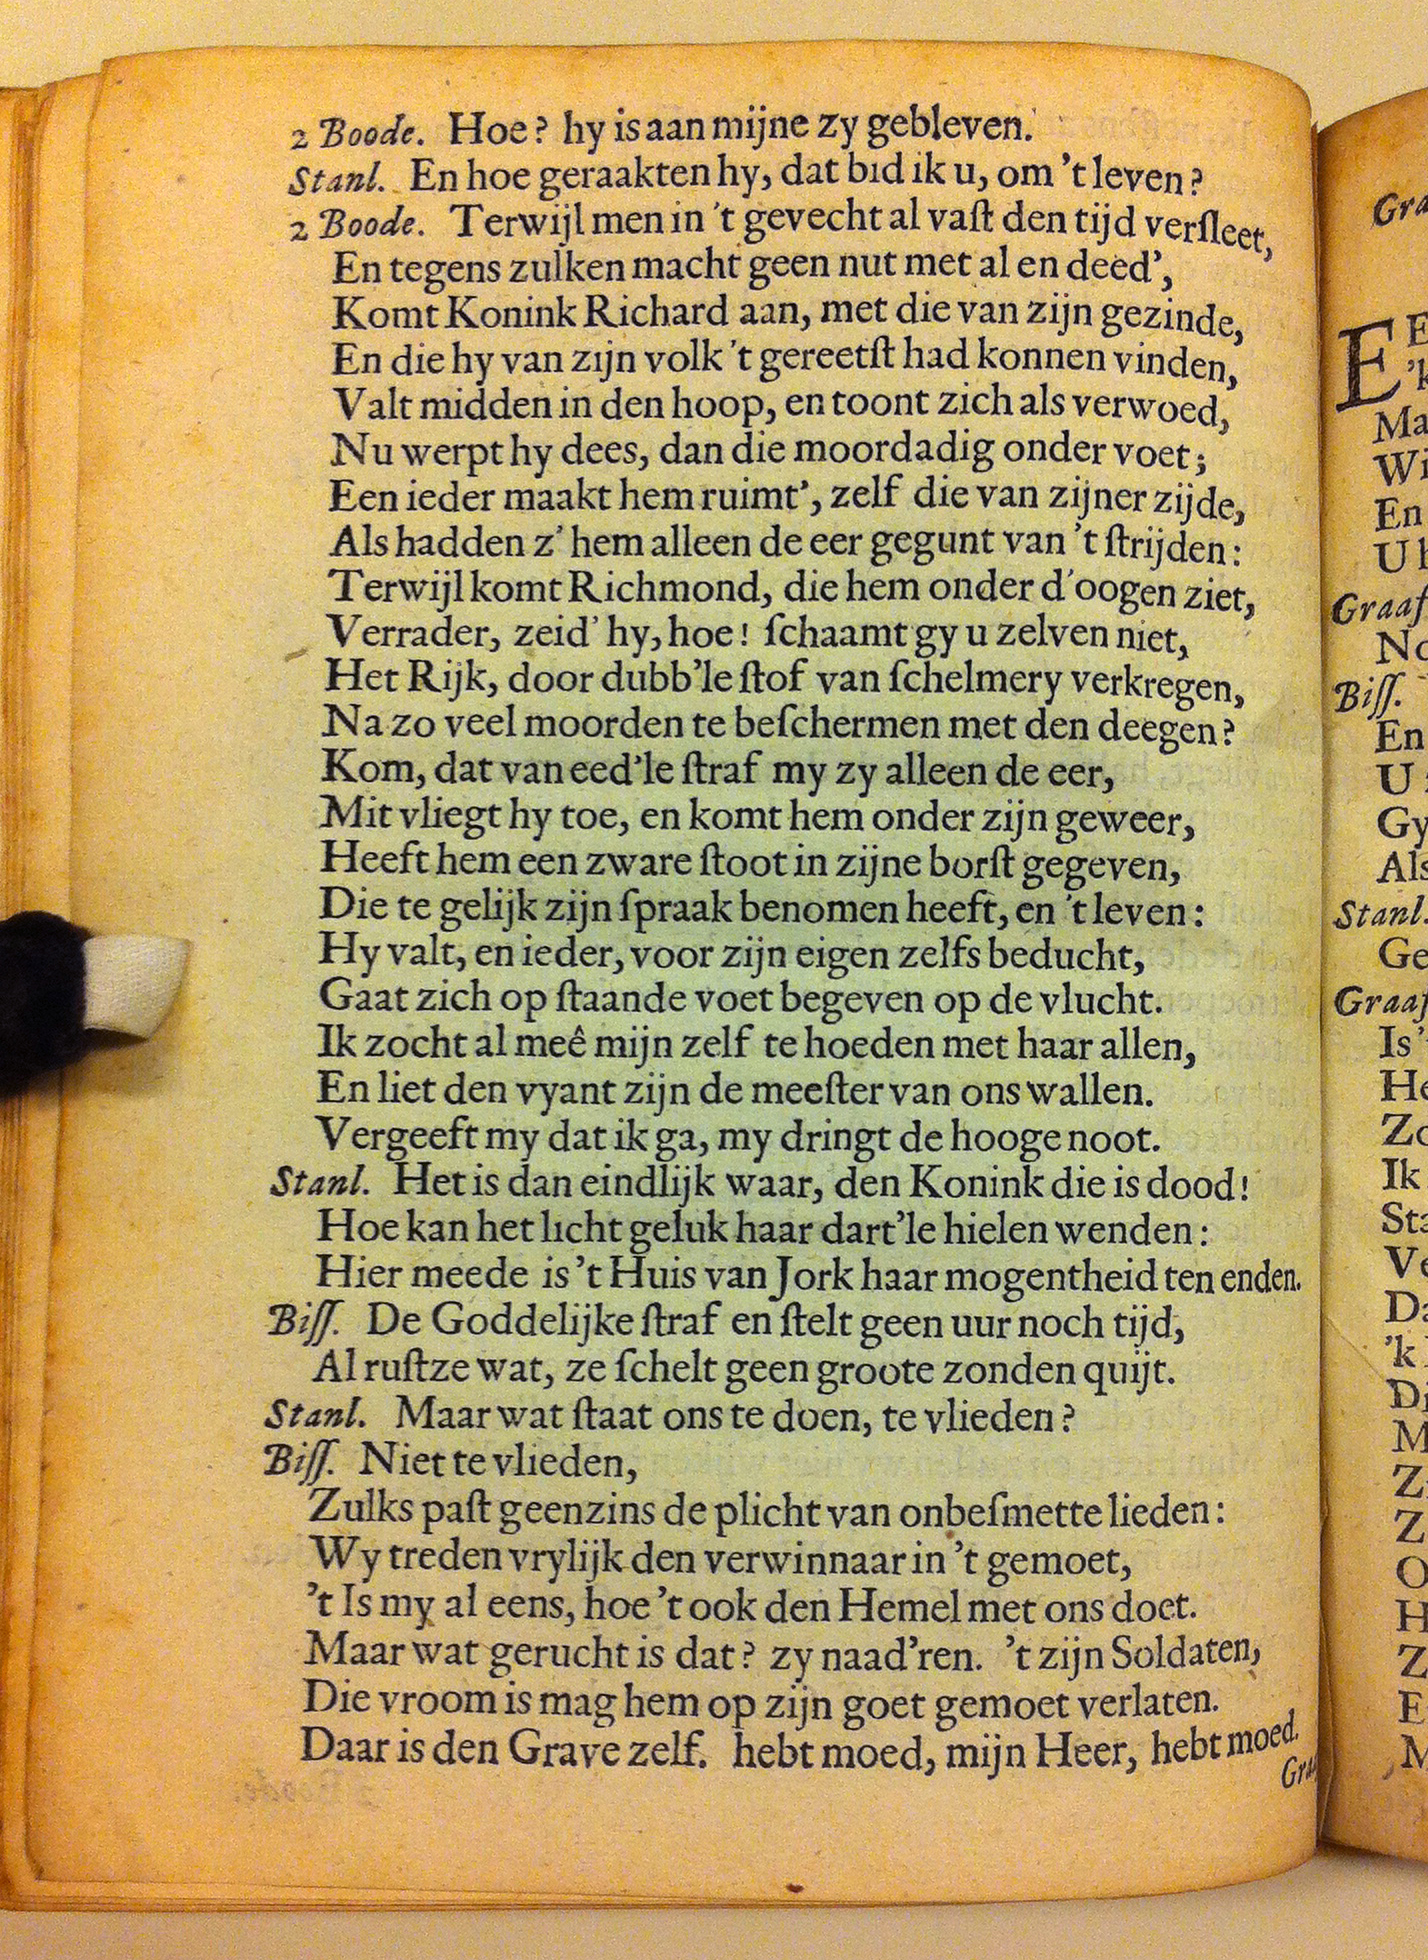 2 Boode. Hoe? hy is aan mijne zy gebleven.
Stanl. En hoe geraakten hy, dat bid ik u, om 't leven?
2 Boode. Terwijl men in 't gevecht al vaſt den tijd verſleet,
En tegens zulken macht geen nut met al en deed',
Komt Konink Richard aan, met die van zijn gezinde,
En die hy van zijn volk 't gereetſt had konnen vinden,
Valt midden in den hoop, en toont zich als verwoed,
Nu werpt hy dees, dan die moordadig onder voet;
Een ieder maakt hem ruimt', zelf die van zijner zijde,
Als hadden z' hem alleen de eer gegunt van 't ſtrijden:
Terwijl komt Richmond, die hem onder d'oogen ziet,
Verrader, zeid' hy, hoe! ſchaamt gy u zelven niet,
Het Rijk, door dubb'le ſtof van ſchelmery verkregen,
Na zo veel moorden te beſchermen met den deegen?
Kom, dat van eed'le ſtraf my zy alleen de eer,
Mit vliegt hy toe, en komt hem onder zijn geweer,
Heeft hem een zware ſtoot in zijne borſt gegeven,
Die te gelijk zijn ſpraak benomen heeft, en 't leven:
Hy valt, en ieder, voor zijn eigen zelfs beducht,
Gaat zich op ſtaande voet begeven op de vlucht.
Ik zocht al meê mijn zelf te hoeden met haar allen,
En liet den vyant zijn de meeſter van ons wallen.
Vergeeft my dat ik ga, my dringt de hooge noot.
Stanl. Het is dan eindlijk waar, den Konink die is dood!
Hoe kan het licht geluk haar dart'le hielen wenden:
Hier meede is 't Huis van Jork haar mogentheid ten enden.
Biſſ. De Goddelijke ſtraf en ſtelt geen uur noch tijd,
Al ruſt ze wat, ze ſchelt geen groote zonden quijt.
Stanl. Maar wat ſtaat ons te doen, te vlieden?
Biſſ. Niet te vlieden,
Zulks paſt geenzins de plicht van onbeſmette lieden:
Wy treden vrylijk den verwinnaar in 't gemoet,
't Is my al eens, hoe 't ook den Hemel met ons doet.
Maar wat gerucht is dat? zy naad'ren. 't zijn Soldaten,
Die vroom is mag hem op zijn goet gemoet verlaten.
Daar is den Grave zelf. hebt moed, mijn Heer, hebt moed.
E
Ma
Wi
En
U
Graaf
No
Biſſ.
En
U
Gy
Als
Stanl.
Ge
Graaf
Is
He
Zo
Ik
Sta
Ve
Da
'k
Di
M
Z
Z
O
H
Z
E
M